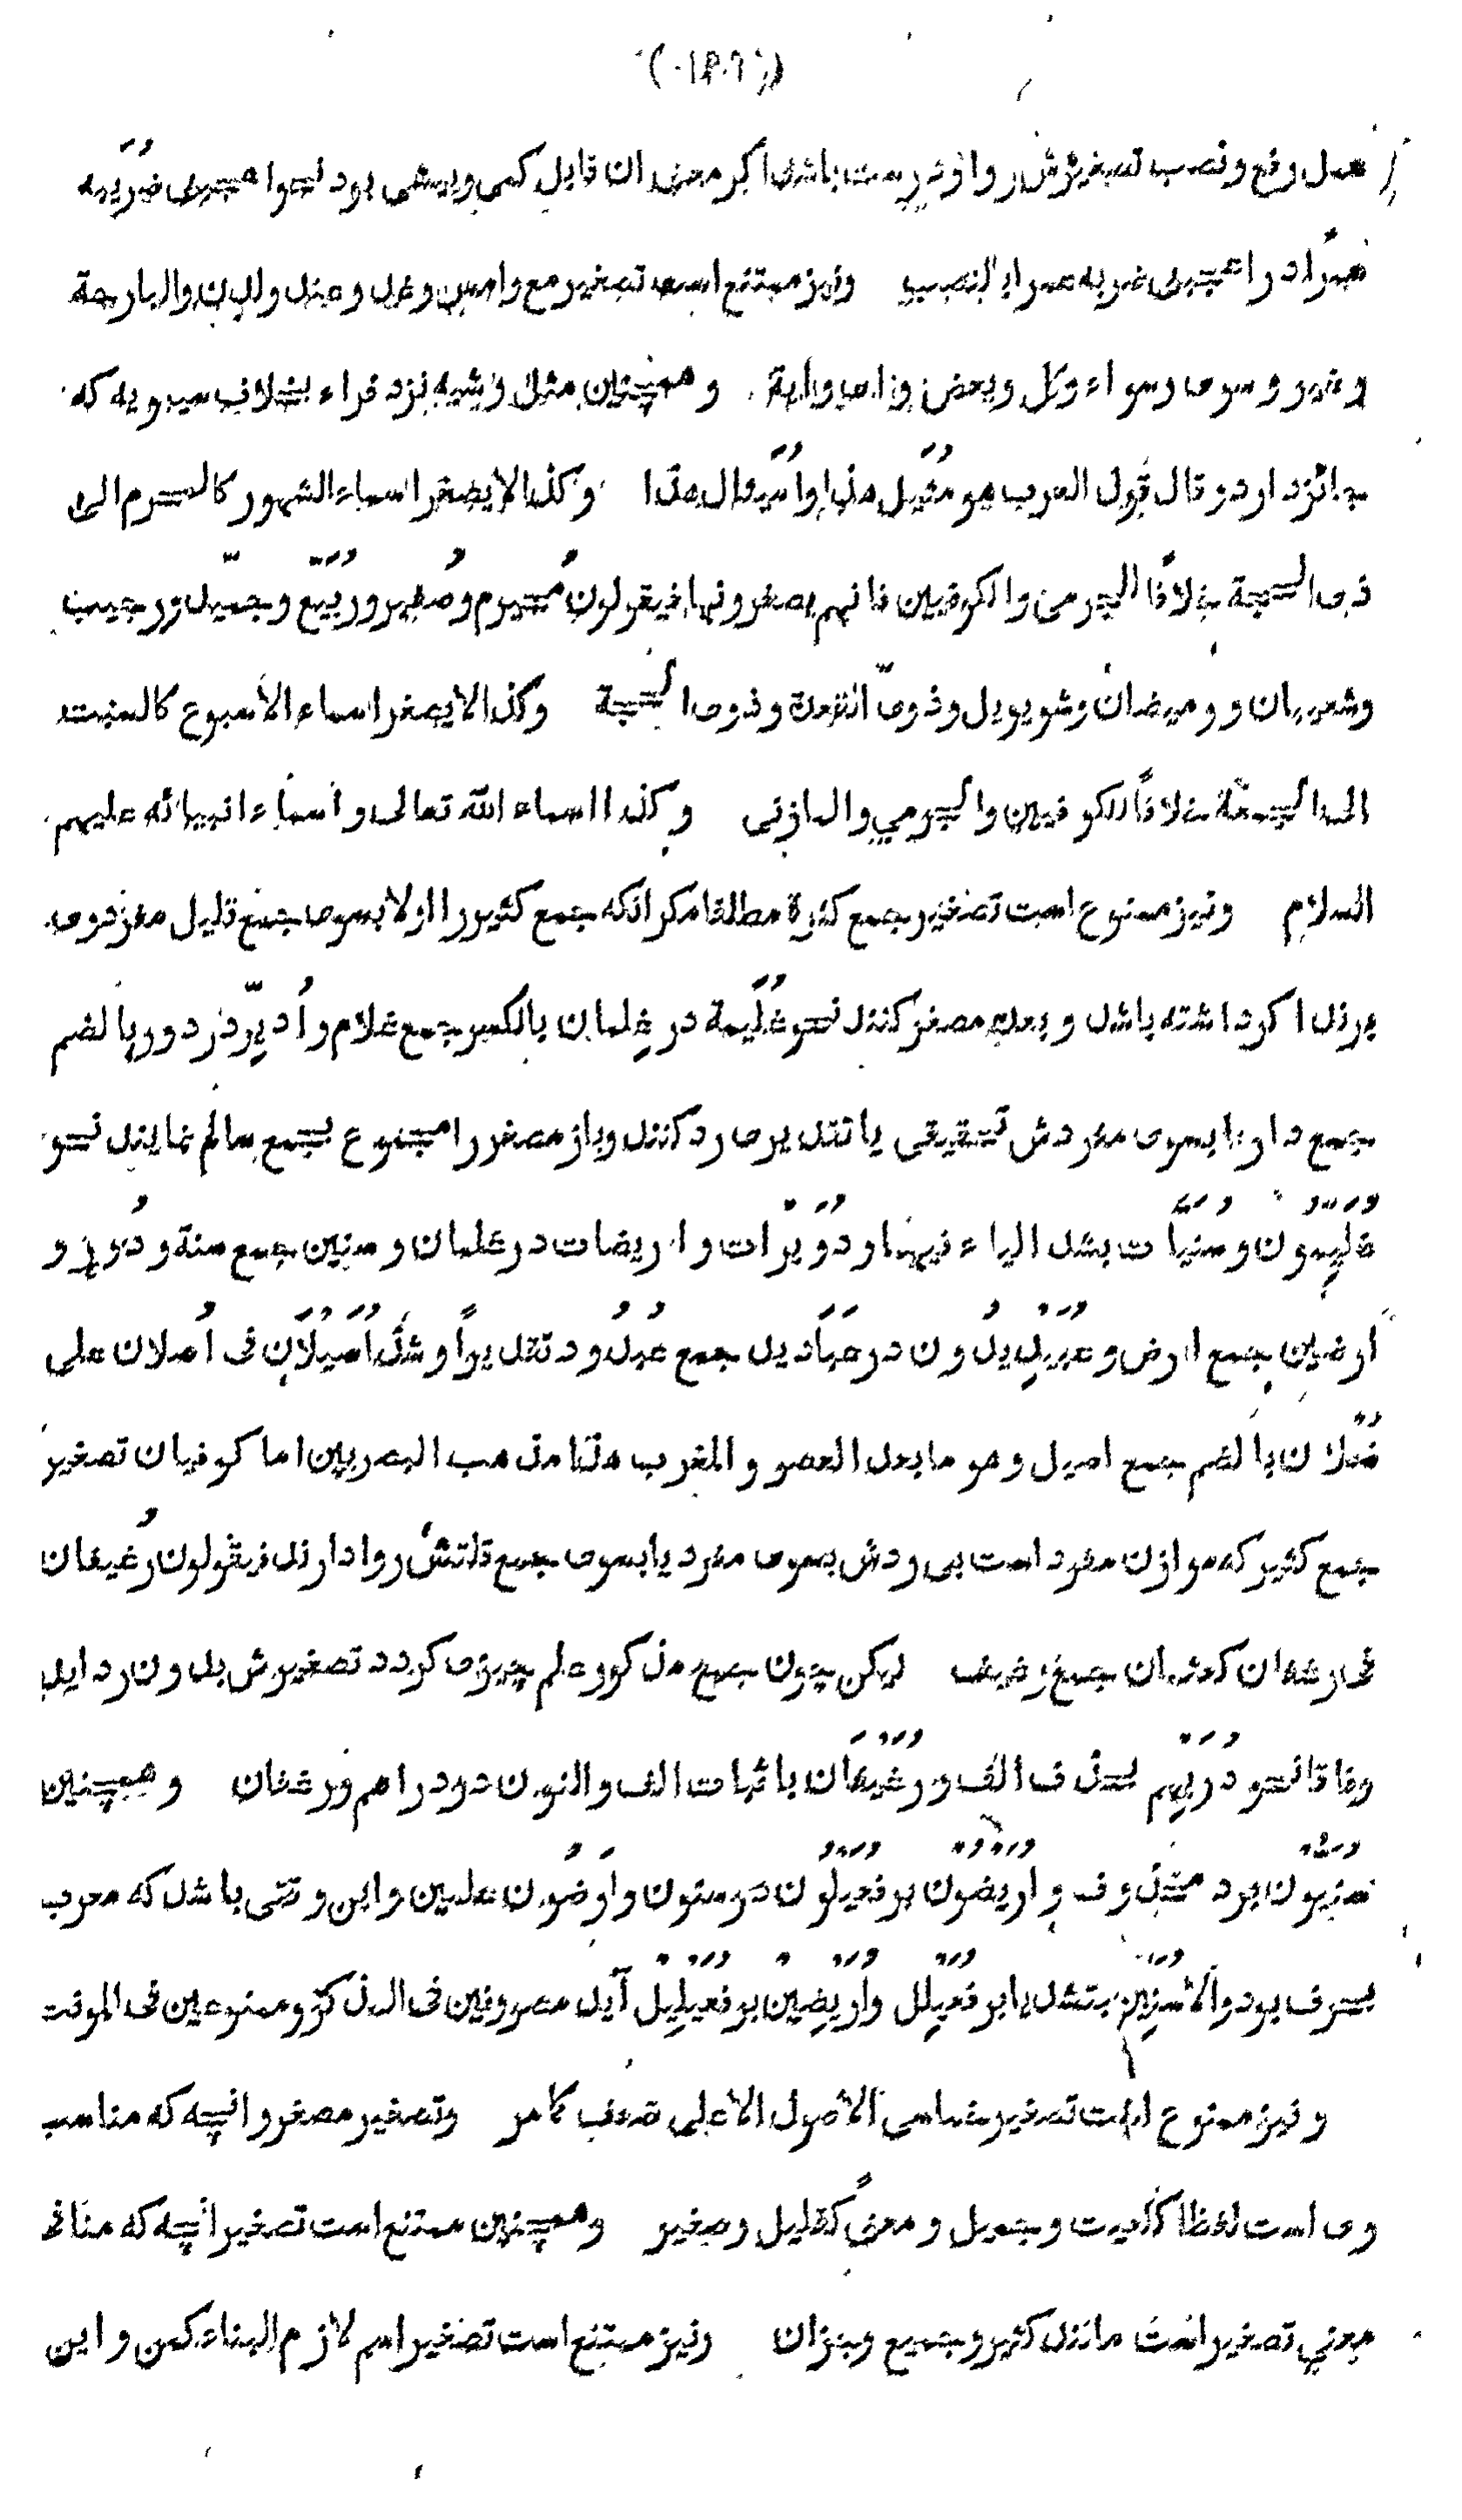 (١٤٠٦)
عمل رفع و نصب تصغیرش روا و درست باشد اگر معنی ان قابل کمی و بیشی بود نحو اعجبنی ضُرَیبه
در اعجبنی ضربه و نیز ممتنع است تصغیر مع و امس و غد و عند و البارحة
و غیر و سوی و سواء و کل و بعض و همچنین مثل و شبه نزد فراء بخلاف سیبویه که
جائز دارد و قال قول العرب هو مُثَیل هذا و اُمَیثال هذا و کذا لا یصغر اسماء الشهور کالمحرم الی
ذی الحجة خلافًا للجرمی و الکوفیین فانهم یصغرونها فیقولون مُحیرم و صُفیر و رُبَیّع و جمیّد و رجیب
و شعیبان و رمیضان و شویویل و ذویّ القعدة و ذوی الحجة و کذا لا یصغر اسماء الاُسبوع کالسبت
الی الجمعة خلافاً للکوفیین و الجرمی و المازنی و کذا اسماء الله تعالی و اسماء انبیائه علیهم
السلام و نیز ممنوع است تصغیر جمع کثرة مطلقا مگر انکه جمع کثیر را اولا بسوی جمع قلیل مفرد وی
برند اگر داشته باشد و بعده مصغر کنند نحو غُلَیمة در غِلمان بالکسر جمع غلام و اُدیّر در دور بالضم
جمع دار یا بسوی مفردش تحقیقی یا تقدیری رد کنند و باز مصغر را مجموع بجمع سالم نمایند نحو
غُلَیِّمون و سُنَیّات بشد الیاء فیهما و دُوَیْرات و اریضات در غلمان و سنین جمع سنة و دُور و
اَرضین جمع ارض و عُبَیْدِیدُون در عَبَادید جمع عُبدُود تقدیراً و شذّ اُصَیْلَان فی اُصلان علی
فُعْلان بالضم جمع اصیل و هو ما بعد العصر و المغرب هذا مذهب البصریین اما کوفیان تصغیر
جمع کثیر که موازن مفرد است بی ردش بسوی مفرد یا بسوی جمع قلتش روا دارند فیقولون رُغیفان
فی رغفان کعثمان جمع رغیف لیکن چون جمع مذکور علم چیزی گردد تصغیرش بدون رد اید
وفاقا نحو دُرَیْهِم بحذف الف و رُغَیْفَان باثبات الف و النون در دراهم و رغفان و همچنین
سنیون برد محذوف و اریضون بر فعیلون در سنون و اَرَضُون علمین و این وقتی باشد که معرب
بحرف بود و الا سُنَیِّن بتشدیدها بر فُعَیلِل و اُرَیْضِین بر فُعَیْلِیل آید مصروفین فی المذکر و ممنوعین فی المونث
و نیز ممنوع است تصغیر خماسی الاصول الا علی ضعف کما مر و تصغیر مصغر و انچه که مناسب
وی است لفظا ککمیت و جمیل و معنی کقلیل و صغیر و همچنین ممتنع است تصغیر انچه که منافی
معنی تصغیر است مانند کثیر و جمیع و نیز ممتنع است تصغیر اسم لازم البناء کمن و این